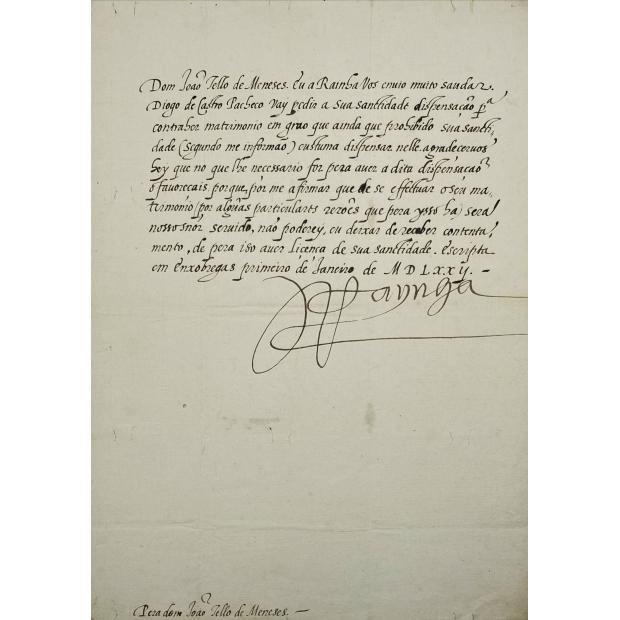 Dom João Tello de Meneses. Eu a Rainha Vos envio muito saudar.
Diogo de Castro Pacheco Vay pedir a sua santidade dispensação pª
contraher matrimonio em grao que ainda que prohibido sua sancti-
dade (segundo me informão) custuma dispensar nelle. agradecervos
hey que no que lhe necessario for pera aver a dita dispensação
o favoreçais. porque por me afirmar que de se effeituar o seu ma-
trimonio (por algũas particulares rezoẽs que pera ysso ha) sera
nosso snõr servido, não poderey, eu deixar de receber contenta-
mento, de pera isso aver licença de sua santidade. escripta
em enxobregas primeiro de Janeiro de MDLXXIJ. —
Raynha
Pera dom João Tello de Meneses. —